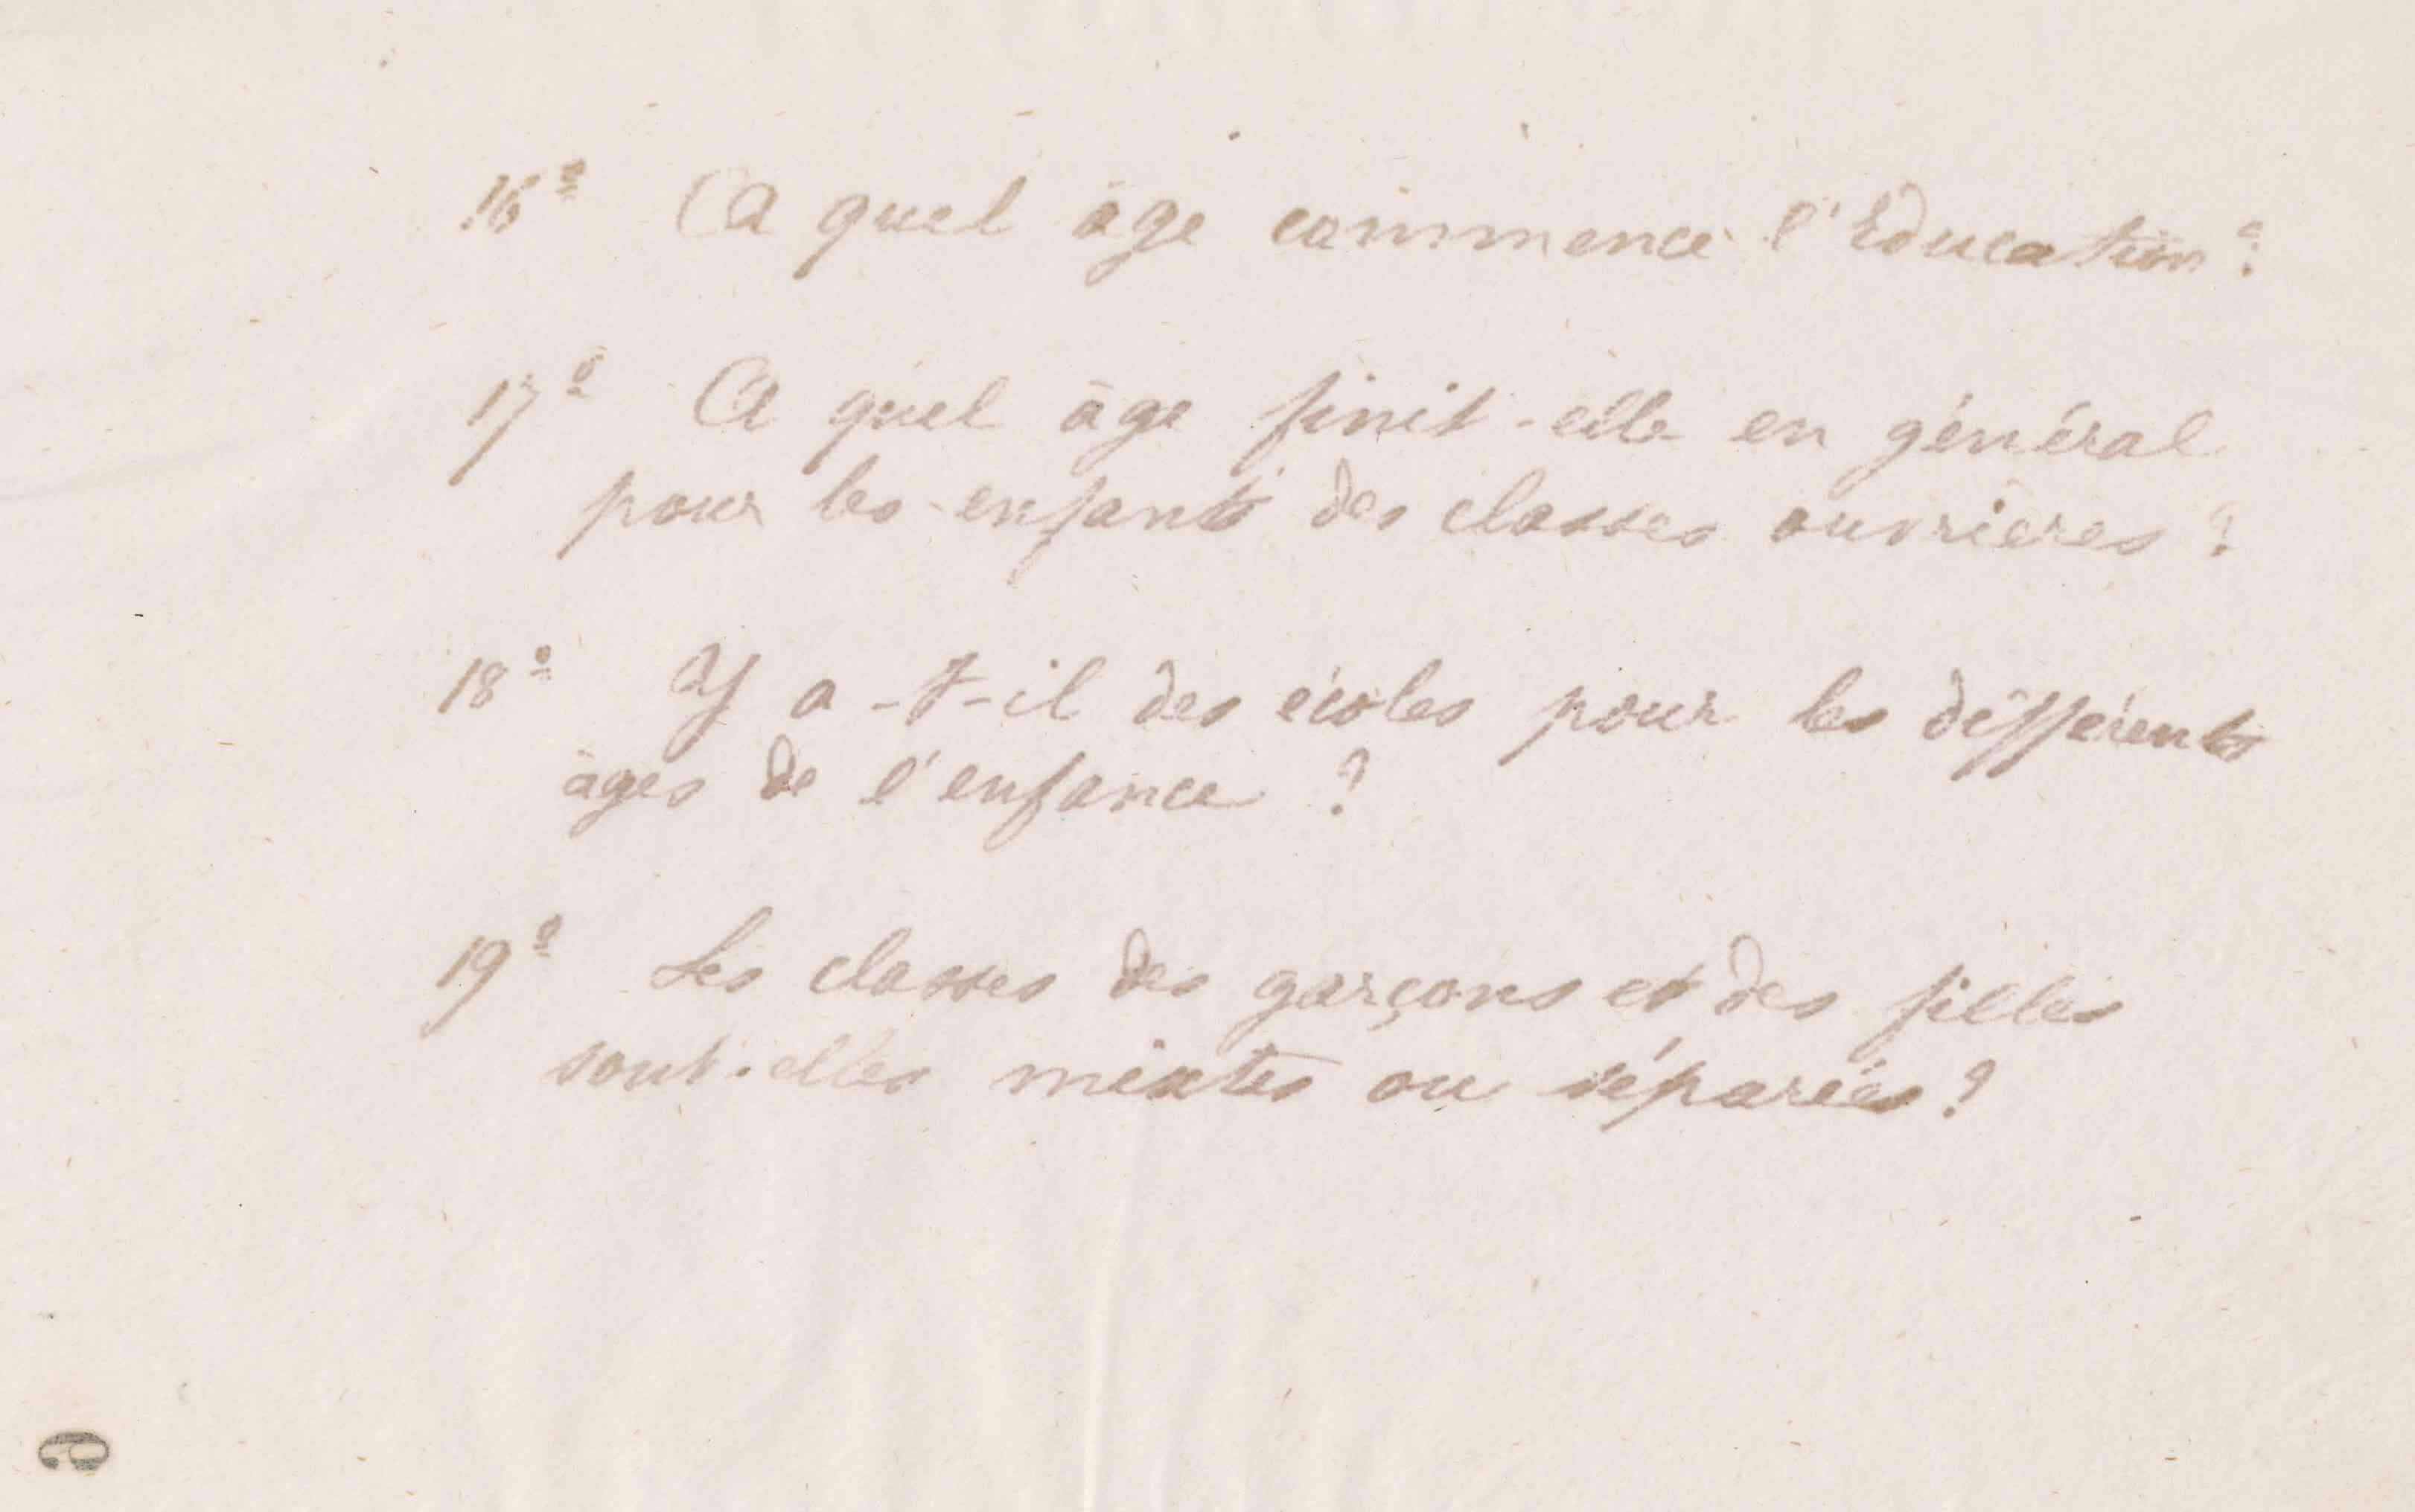 16º A quel âge commence l'Education ?
17º A quel âge finit-elle en général
pour les enfants des classes ouvrières ?
18º Y a-t-il des écoles pour les différents
âges de l'enfance ?
19º Les classes des garçons et des filles
sont-elles mixtes ou séparées ?